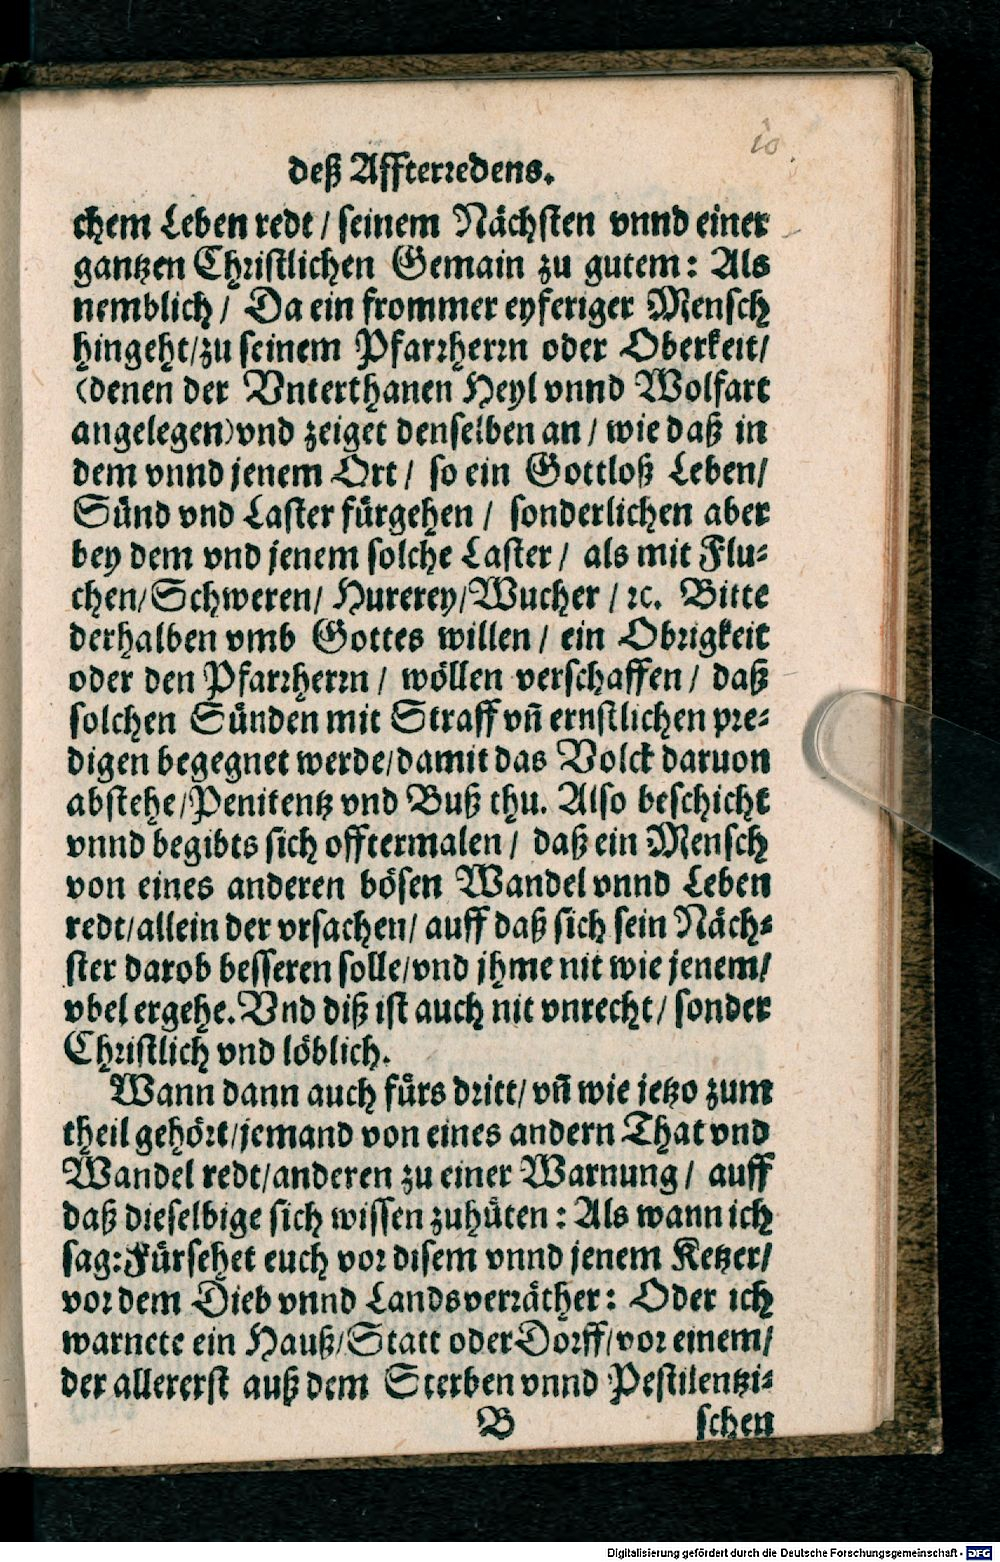 10
deß Affterredens.
chem Leben redt / seinem Nächsten vnnd einer
gantzen Christlichen Gemain zu gutem: Als
nemblich / Da ein frommer eyferiger Mensch
hingeht/zu seinem Pfarrherrn oder Oberkeit/
(denen der Vnterthanen Heyl vnnd Wolfart
angelegen) vnd zeiget denselben an / wie daß in
dem vnnd jenem Ort / so ein Gottloß Leben/
Sünd vnd Laster fürgehen / sonderlichen aber
bey dem vnd jenem solche Laster / als mit Flu-
chen/Schweren/ Hurerey/Wucher / ꝛc. Bitte
derhalben vmb Gottes willen / ein Obrigkeit
oder den Pfarrherrn / wöllen verschaffen / daß
solchen Sünden mit Straff vñ ernstlichen pre-
digen begegnet werde/damit das Volck daruon
abstehe/Penitentz vnd Buß thu. Also beschicht
vnnd begibts sich offtermalen / daß ein Mensch
von eines anderen bösen Wandel vnnd Leben
redt/allein der vrsachen/ auff daß sich sein Näch-
ster darob besseren solle/vnd jhme nit wie jenem/
vbel ergehe. Vnd diß ist auch nit vnrecht/ sonder
Christlich vnd löblich.
Wann dann auch fürs dritt/ vñ wie jetzo zum
theil gehört/jemand von eines andern That vnd
Wandel redt/anderen zu einer Warnung / auff
daß dieselbige sich wissen zuhüten : Als wann ich
sag: Fürsehet euch vor disem vnnd jenem Ketzer/
vor dem Dieb vnnd Landsverräther: Oder ich
warnete ein Hauß/Statt oder Dorff/vor einem/
der allererst auß dem Sterben vnnd Pestilentzi-
B schen
Digitalisierung gefördert durch die Deutsche Forschungsgemeinschaft - DFG